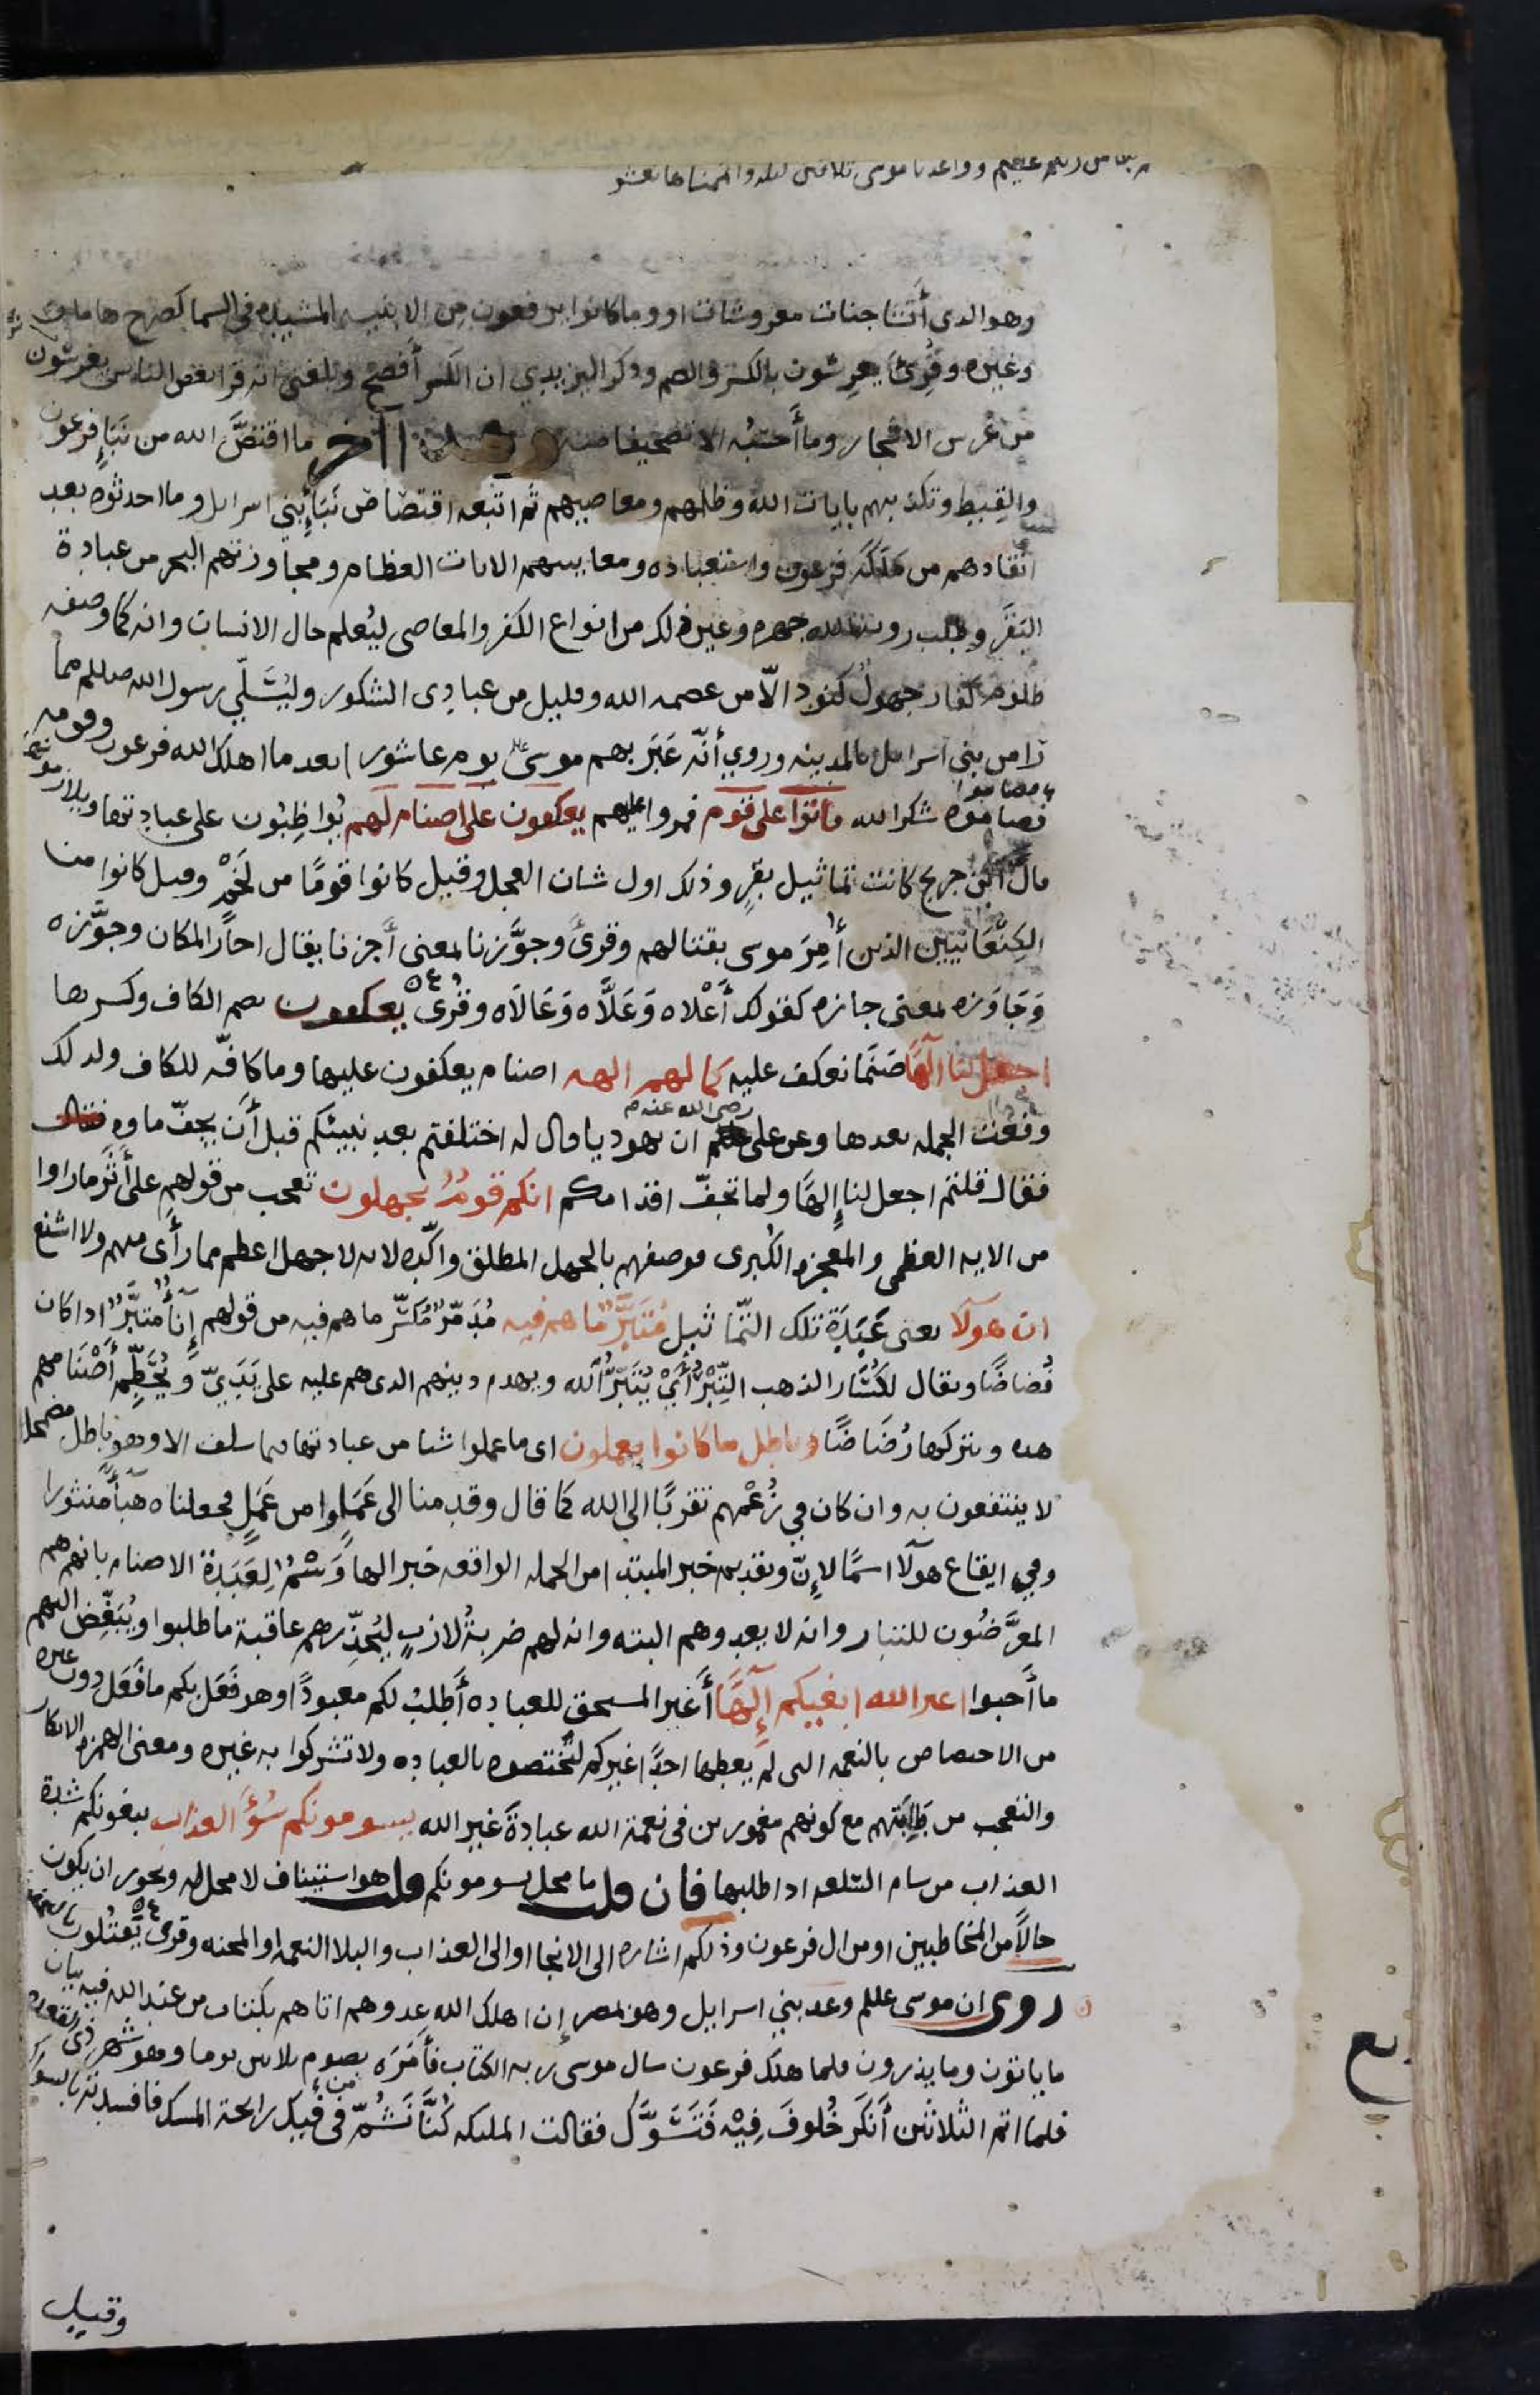 من ربكم عظيم وواعدنا موسى ثلاثين ليله واتممناها بعشر
وهو الدى أنشا جنات معروشات او وما كانوا يرفعون من الابنيه المشيده في السما كصرح هامان
وغيره وقرئ يعرشون بالكسر والضم وذكر اليزيدي ان الكسر أفصح وبلغني انه قرا بعض الناس يغرسون
من غرس الاشجار وما أحسبه الا تصحيفا منه وهذا آخر ما اقتصَّ الله من نَبَإِ فرعون
والقِبط وتكذيبهم بايات الله وظلمهم ومعاصيهم ثم اتبعه اقتصاص نَبَأِ بني اسرايل وما احدثوه بعد
انقادهم من مَلَكَة فرعون واستعباده ومعاينتهم الايات العظام ومجاوزتهم البحر من عبادة
البَقَر وطلب روية الله جهره وغير ذلك من انواع الكفر والمعاصى ليُعلم حال الانسان وانه كما وصفه
ظلوم كفار جهولٌ كنود الّا من عصمه الله وقليل من عبادى الشكور وليُسَلّي رسول الله صللم مما
رَا من بني اسرايل بالمدينه وروي أنّه عَبَر بهم موسى يوم عاشورا بعد ما اهلك الله فرعون وقومه
فصاموه شكرا لله فاتوا على قوم فمروا عليهم يعكفون على اصنام لهم يُواظِبُون على عبادتها ويلازمونها
قال ابن جريج كانت تماثيل بقرٍ وذلك اول شان العجل وقيل كانوا قومًا من لَخْمٍ وقيل كانوا من
الكِنْعَانيين الذين أُمِرَ موسى بقتالهم وقرئ وجوَّزنا بمعنى أجزنا يقال اجاز المكان وجوَّزه
وَجَاوَزه بمعنى جازه كقولك أَعْلاه وَعَلَّاه وَعَالَاه وقُرئ يعكفون بضم الكاف وكسرها
اجعل لنا آلهًا صَنَمًا نعكف عليه كما لهم الهه اصنام يعكفون عليها وما كافّه للكاف ولدلك
وقعت الجمله بعدها وعن على رضى الله عنه ان يهوديا قال له اختلفتم بعد نبيئكم قبل أن يجفّ ماوه
فقال قلتم اجعل لنا إلهًا ولما تجفّ اقدامكم انكم قومٌ تجهلون تعجب من قولهم على أَثَر ما راوا
من الايه العظمى والمعجزه الكُبرى فوصفهم بالجهل المطلق واكّده لانه لا جهل اعظم مما رأَى منهم ولا اشنع
ان هولآ يعنى عَبَدَة تلك التّماثيل مُتَبَّرٌ ما هم فيه مُدَمَّرٌ مُكَسَّرٌ ما هم فيه من قولهم إِنَآءٌ مُتَبَّرٌ ادا كان
فُضاضًا ويقال لكُسَار الذهب التِّبْرُ أَيْ يُتَبِّرُ الله ويهدم دينهم الدى هم عليه على يَدَيّ وَيُحَطِّم أَصْنَامهم
هده ويتركها رُضَاضًا وباطل ما كانوا يعملون اى ما عملوا شيا من عبادتها فيما سلف الا وهو باطل مضمحل
لا ينتفعون به وان كان في زُعْمهم تقربًا الى الله كما قال وقدمنا الى ما عَمِلوا من عَمَلٍ فجعلناه هَبَآءً منثورا
وفي ايقاع هولآ اسمًا لإِنّ وتقديم خبر المبتدا من الجمله الواقعه خبرا لها وَسْمٌ لِعَبَدَة الاصنام بانهم هم
المعَرَّضُون للتبار وانه لا يعدوهم البته وانه لهم ضربةُ لازبٍ ليُحذّرهم عاقبة ما طلبوا ويُبَغِّض اليهم
ما أَحبوا اغير الله ابغيكم إِلَهًا أَغير المستحق للعباده أطلبُ لكم معبودًا وهو فَعَل بكم ما فَعَل دون غيره
من الاختصاص بالنعمه التى لم يُعطها احدًا غيركم لتختصوه بالعباده ولا تشركوا به غيره ومعنى الهمزه الانكار
والتعجب من طَلِبَتهم مع كونهم مغمورين في نعمة الله عبادةَ غير الله يسومونكم سُوٓءَ العذاب يبغونكم شدة
العذاب من سام السّلعه ادا طلبها فان قلت ما محل يسومونكم قلت هو استيناف لا محل له ويجوز ان يكون
حالًا من المخاطبين او من ال فرعون وذلكم اشاره الى الانجا او الى العذاب والبلا النعمه او المحنه وقرئ يَقْتُلون
روى ان موسى علىلم وعد بني اسرايل وهو بمصر إن اهلك الله عدوهم اتاهم بكتاب من عند الله فيه بيان
ما ياتون وما يذرون فلما هلك فرعون سال موسى ربه الكتاب فأَمَرَه بصوم ثلاثين يوما وهو شهر ذى القعده
فلما اتم الثلاثين أَنكَر خُلوفَ فِيْه فَتَسَوَّك فقالت الملىكه كُنَّا نَشُمّ من فيك رايحة المسك فافسدته بالسواك
وقيل